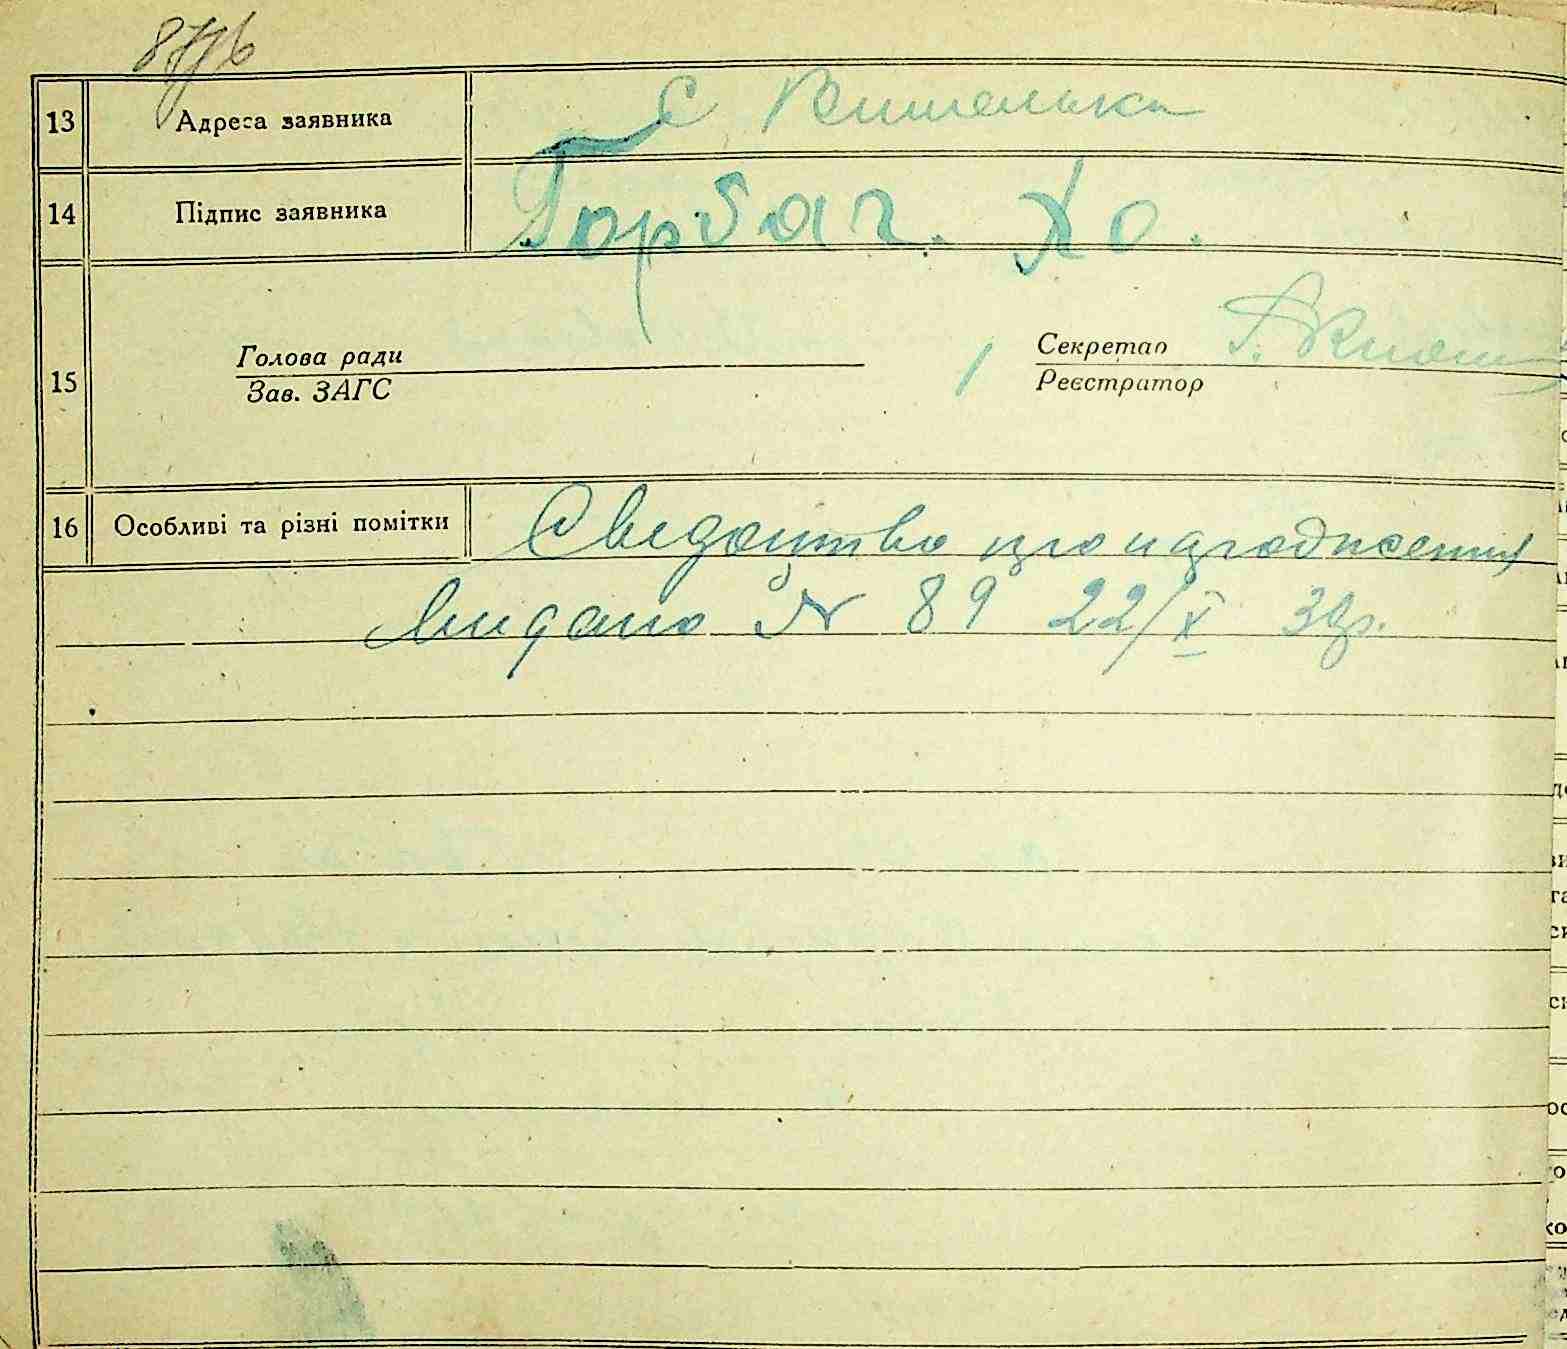 13 Адреса заявника с Вишеньки
14 Підпис заявника Горбач. Хо.
Голова ради Секретар
15
Зав. ЗАГС Реєстратор
16 Особливі та різні помітки Сведоцтво про народження
Видано N 89 22/X 39р.